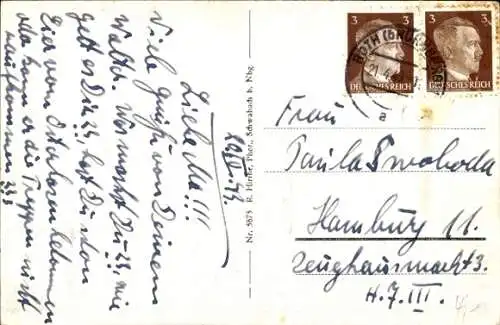 20.IV.42
Liebe Ma!!!
Viele Grüße von Deinem
Walter. Was machst Du??, wie
geht es Dir??, hast Du schon
Eier vom Osterhasen bekommen
oder kann er die Treppen nicht
raufkommen???
Nr. 5675 R. Hirrle, Phot., Schwabach b. Nbg.
3
DEUTSCHES REICH
3
DEUTSCHES REICH
ROTH
Frau
Paula Swoboda
Hamburg 11.
Zeughausmarkt 3.
H. 7. III.